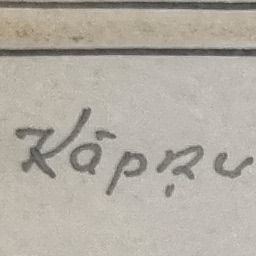 Kāpņu